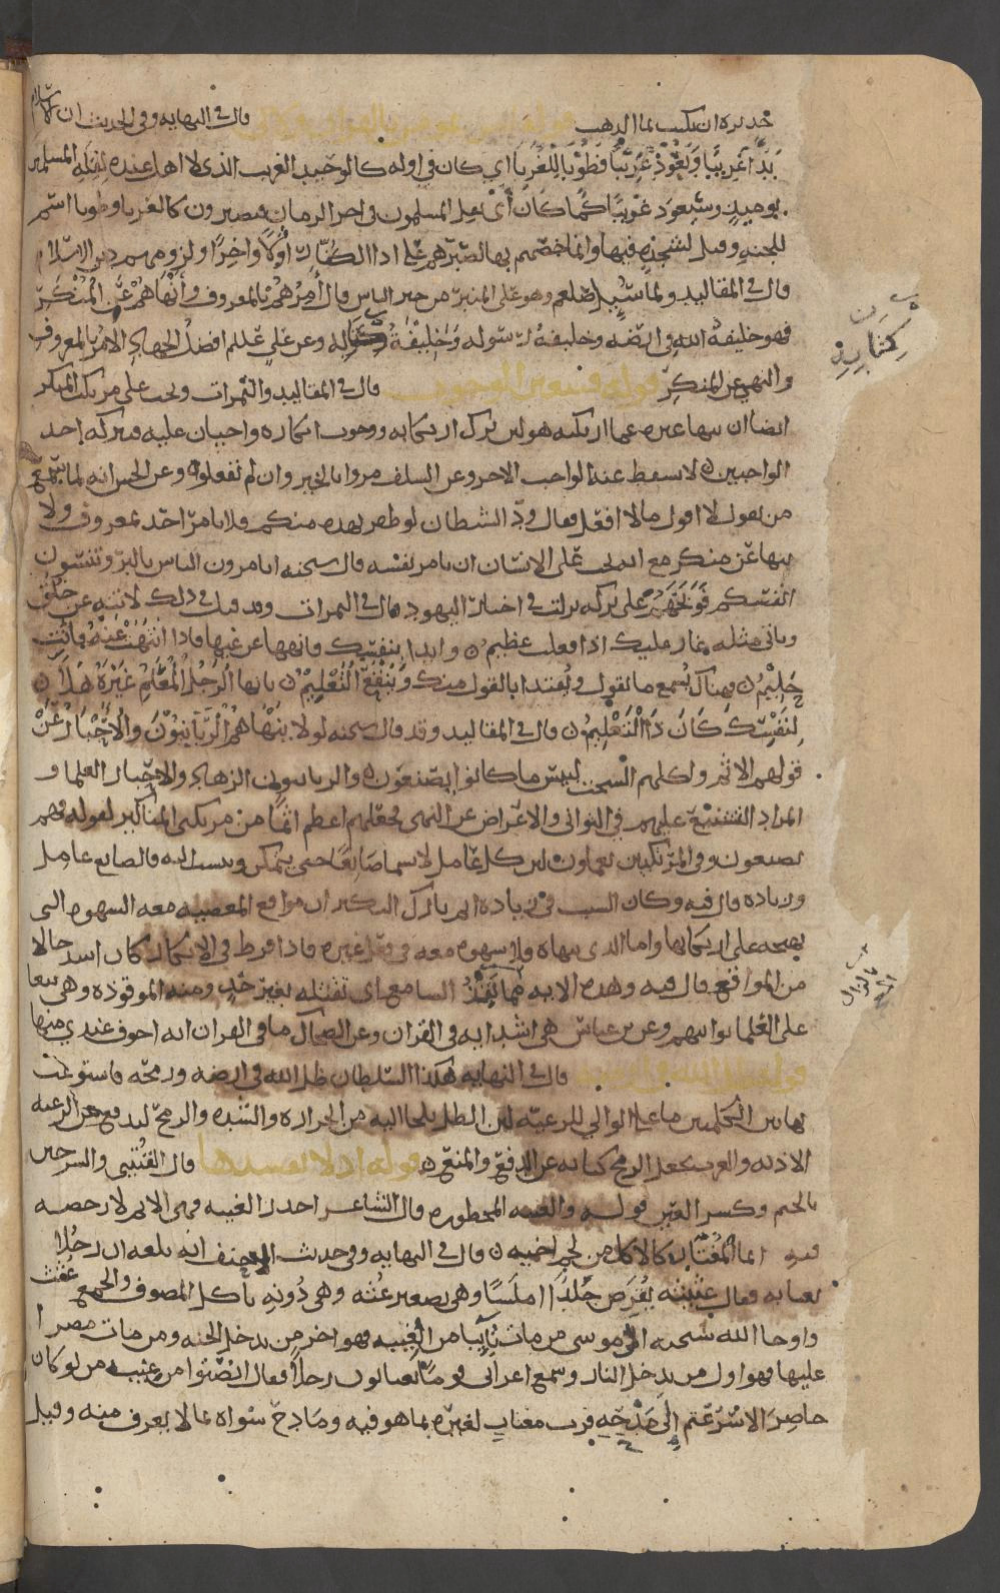 جديره ان تكتب بما الذهب قال في النهايه وفي الحديث ان الاسلام
بدا غريبًا وسيعود غريبًا فطوبا للغربا اي كان في اوله كالوحيد الغريب الذي لا اهل عنده لقله المسلمين
يوميذٍ وسيعود غريبًا كما كان اي يقل المسلمون في اخر الزمان فيصيرون كالغربا وطوبا اسم
للجنه وقيل لشجره فيها وانما خصهم بها لصبرهم على اذا الكفار اولًا واخرًا ولزومهم دين الاسلام
قال في المقاليد ولما سيل صلعم وهو على المنبر من خير الناس قال امرهم بالمعروف وانهاهم عن المنكر
فهو خليفة الله في ارضه وخليفة رسوله وخليفة كتابه وعن علي علم افضل الجهاد الامر بالمعروف
والنهي عن المنكر قوله فتعين الوجوب قال في المقاليد والثمرات ويجب على مرتكب المنكر
ايضا ان ينها غيره عما ارتكبه هو لان ترك ارتكابه ووجوب انكاره واجبان عليه فبتركه احد
الواجبين لا يسقط عنه الواجب الاخر وعن السلف مروا بالخير وان لم تفعلوا وعن الحسن انه لما سمع
من يقول لا اقول ما لا افعل فقال ود الشيطان لو ظفر بهذه منكم فلا يامر احد بمعروف ولا
ينها عن منكر مع انه على الانسان ان يامر نفسه قال سبحنه اتامرون الناس بالبر وتنسون
انفسكم فوبخهم على تركه نزلت في احبار اليهود قال في الثمرات وقد قيل في ذلك لا تنه عن خلق
وتاتي مثله عار عليك اذا فعلت عظيم وابدا بنفسك فانهها عن غيها فاذا انتهت عنه فانت
حليم فهناك يسمع ما تقول ويقتدا بالقول منك وينفع التعليم يا ايها الرجل المعلم غيره هلا
لنفسك كان ذا التعليم قال في المقاليد وقد قال سبحنه لولا ينهاهم الربانيون والاحبار عن
قولهم الاثم واكلهم السحت لبيس ما كانوا يصنعون والربانيون الزهاد والاحبار العلما و
المراد التشنيع عليهم في التواني والاعراض عن النهي وجعلهم اعظم اثما من مرتكبي المناكير لقوله فيهم
يصنعون وفي المرتكبين يعملون لان كل عامل لا يسما صانعًا حتى يتمكن وينسب اليه فالصانع عامل
وزياده قال فيه وكان السبب في زيادة اثم تارك النكير ان مواقع المعصيه معه الشهوه التي
تحمله على ارتكابها واما الذي ينهاه فلا شهوه معه في فعل غيره فاذا فرط في الانكار كان اشد حالا
من المواقع قال فيه وهذه الايه مما تقذ السامع اي تقتله بغير حد ومنه الموقوذه وهي تنعا
على العلما توانيهم وعن بن عباس هي اشد ايه في القران وعن الضحاك ما في القران ايه اخوف عندي منها
قوله ظل الله في ارضه قال في النهايه هكذا السلطان ظل الله في ارضه ورمحه فاستوعبت
بهاتين الكلمتين ما على الوالي للرعيه لان الظل يلجا اليه من الحراره والشده والرمح ليدفع عن الرعيه
الاذيه والعرب تجعل الرمح كنايه عن الدفع والمنع قوله اذ لا تفسدها قال القتيبي والسرجين
بالجيم وكسر الغين قوله والغيبه المحظوره قال الشاعر احذر الغيبه فهي الاثم لا رخصه
فيه انما المغتاب كالاكل من لحم اخيه قال في النهايه وفي حديث الاحنف انه بلغه ان رجلًا
يغتابه فقال عثيثه تقرض جلدًا املسًا وهي تصغير عثه وهي دونه تاكل الصوف والجمع عثث
واوحا الله سبحنه الى موسى من مات تايبا من الغيبه فهو اخر من يدخل الجنه ومن مات مصرا
عليها فهو اول من يدخل النار وسمع اعرابي قومًا يغتابون رجلًا فقال انصتوا من غيبه من لو كان
حاضرًا لاسرعتم الى مدحه فرب مغتاب لغيره بما هو فيه ومادح سواه بما لا يعرف منه وقيل